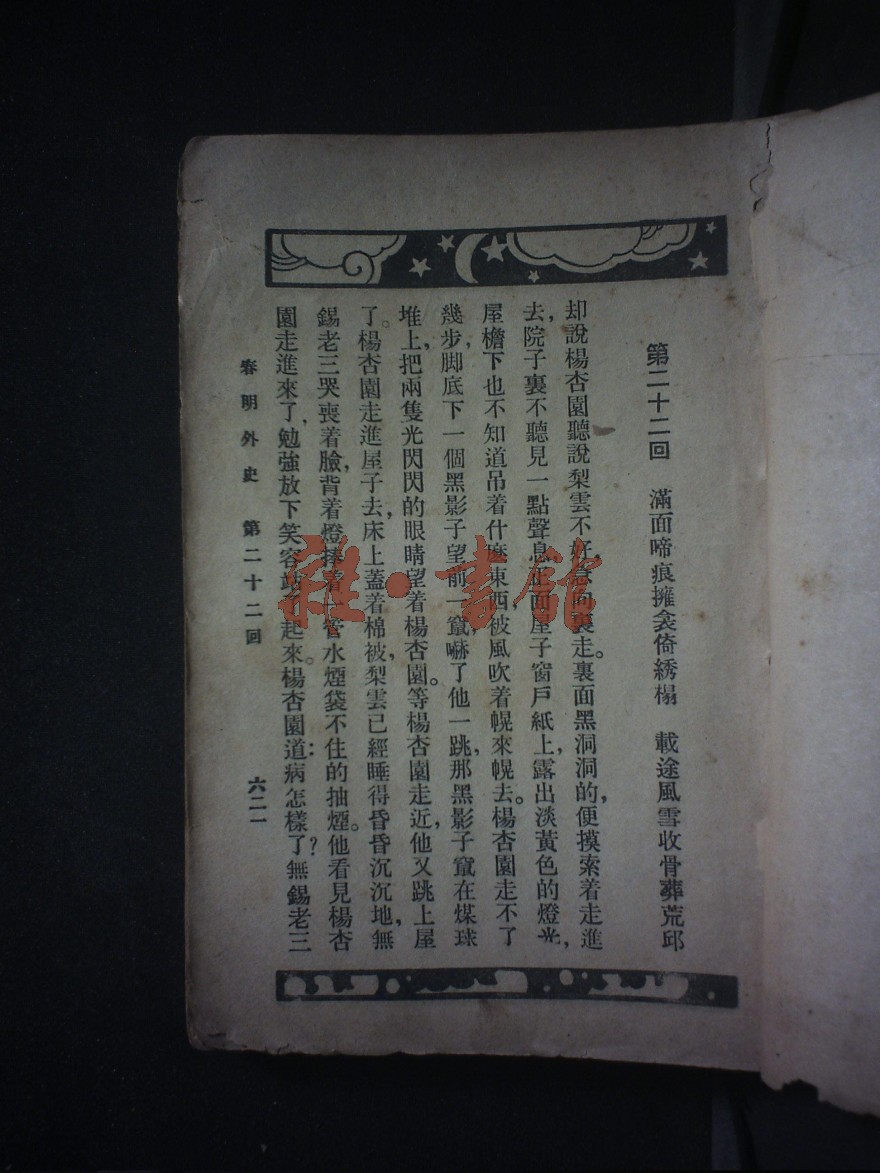 第二十二回　滿面啼痕擁衾倚綉榻　載途風雪收骨葬荒邱
却說楊杏園聽說梨雲不好，向裏走。裏面黑洞洞的，便摸索着走進
去，院子裏不聽見一點聲息，正面屋子窗戶紙上，露出淡黃色的燈光，
屋檐下也不知道吊着什麽東西，被風吹着幌來幌去。楊杏園走不了
幾步，脚底下一個黑影子望前一竄，嚇了他一跳，那黑影子竄在煤球
堆上，把兩隻光閃閃的眼睛望着楊杏園。等楊杏園走近，他又跳上屋
了。楊杏園走進屋子去，床上蓋着棉被，梨雲已經睡得昏昏沉沉地，無
錫老三哭喪着臉，背着燈捧着一管水煙袋不住的抽煙。他看見楊杏
園走進來了，勉強放下笑容站了起來。楊杏園道：病怎樣了？無錫老三
春明外史　第二十二回　六二一
雜·書館